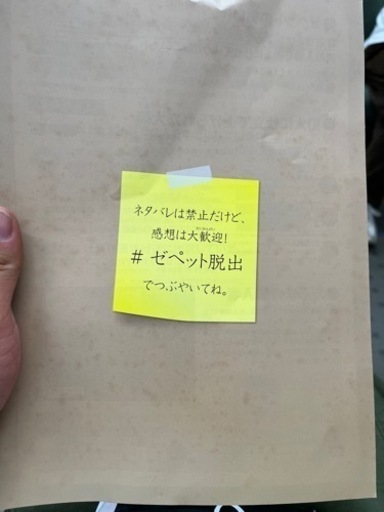 ネタバレは禁止だけど、
感想は大歓迎!
# ゼペット脱出
でつぶやいてね。